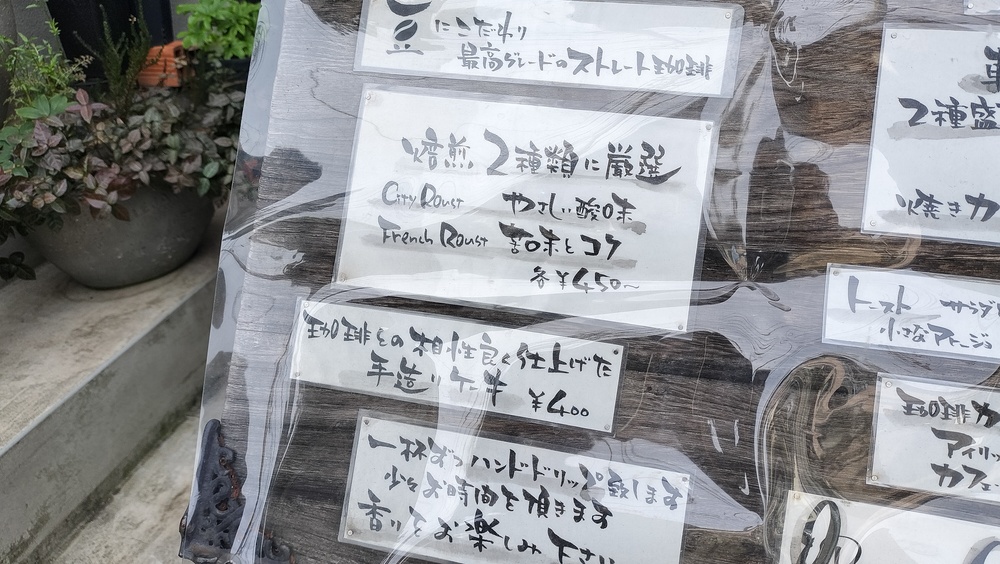 豆にこだわり
最高グレードのストレート珈琲
焙煎 2種類に厳選
City Roust やさしい酸味
French Roust 苦味とコク
各¥450~
珈琲との相性良く仕上げた
手造りケーキ ¥400
一杯ずつハンドドリップ致します
少々お時間を頂きます
香りをお楽しみ下さい
2種盛
焼きカ
トースト サラダ
小さなアヒージョ
珈琲カ
アイリッ
カフェ